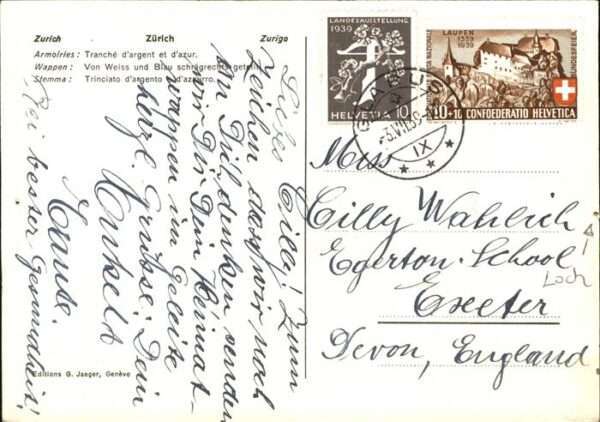 Zurich Zürich Zurigo
Armoiries: Tranché d'argent et d'azur.
Wappen: Von Weiss und Blau schrägrechts geteilt.
Stemma: Trinciato d'argento e d'azzurro.
Liebe Cilly! Zum
Zeichen dass wir noch
an Dich denken senden
wir Dir Dein Heimat-
wappen im Geleite
herzl. Grüsse. Dein
Onkel
Tante.
Bei bester Gesundheit!
Editions G. Jaeger, Genève
LANDESAUSSTELLUNG
1939
HELVETIA 10
LAUPEN
1339
1939
BUNDESFEIER
10+10 CONFOEDERATIO HELVETICA
GLARUS
IX
Miss
Cilly Wahlich
Egerton-School
Loch
Exeter
Devon, England